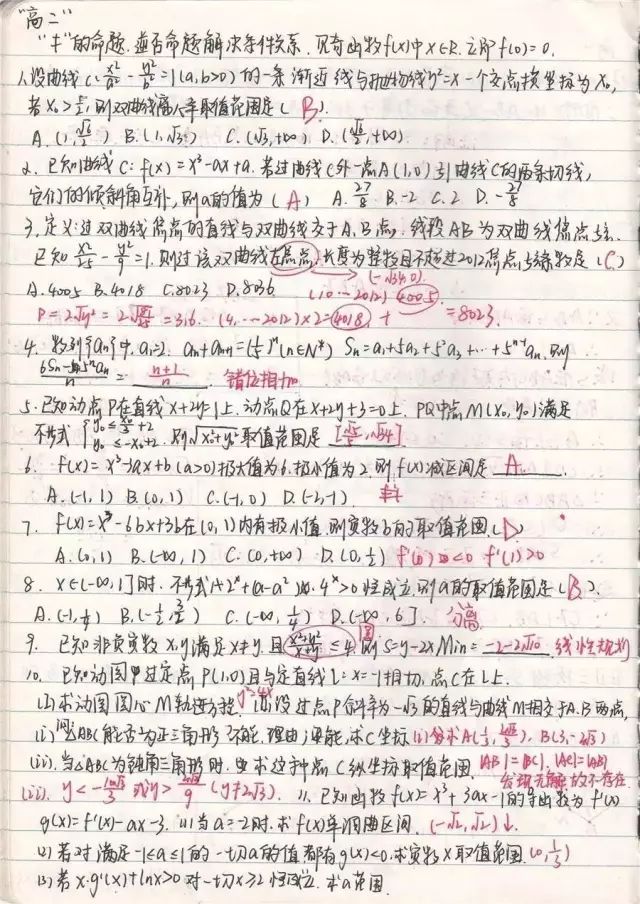 "高二"
"卡"的命题.逆否命题解决条件关系.见奇函数f(x)中x∈R.立即f(0)=0.
1.设曲线C: x²/a² - y²/b² =1(a,b>0)的一条渐近线与抛物线y²=x一个交点横坐标为x₀,
若x₀>½,则双曲线离心率取值范围是( B ).
A.(1,√6/2) B.(1,√3) C.(√3,+∞) D.(√6/2,+∞)
2.已知曲线C: f(x)=x³-ax+a.若过曲线C外一点A(1,0)引曲线C的两条切线,
它们的倾斜角互补,则a的值为( A ) A.27/8 B.-2 C.2 D.-27/8
3.定义:过双曲线焦点的直线与双曲线交于A.B点.线段AB为双曲线焦点弦.
已知x²/25 - y²/9 =1.则过该双曲线左焦点,长度为整数且不超过2012焦点弦条数是( C )
(-√34,0)
A.4005 B.4018 C.8023 D.8036 (10…2012) 4005.
=3.6. (4,…2012)×2=4018. + =8023.
4.数列{an}中.a₁=2. an+an+1=(1/5)ⁿ(n∈N*) Sn=a₁+5a₂+5²a₃+…+5ⁿ⁻¹an.则
= n+1/n 错位相加
5.已知动点P在直线x+2y=1上.动点Q在x+2y+3=0上. PQ中点M(x₀,y₀)满足
不等式 y₀≤ +2 y₀≤-x₀+2. 则√x₀²+y₀²取值范围是 [√5/5,√34].
6. f(x)=x³-3ax+b(a>0)极大值为6.极小值为2.则f(x)减区间是 A.
A.(-1,1) B.(0,1) C.(-1,0) D.(-2,-1)
7. f(x)=x³-6bx+3b在(0,1)内有极小值.则实数b的取值范围.( D )
A.(0,1) B.(-∞,1) C.(0,+∞) D.(0,½) f'(0)<0 f'(1)>0
8. x∈(-∞,1]时.不等式1+2ˣ+(a-a²)·4ˣ>0恒成立.则a的取值范围是( B ).
A.(-1,¼) B.(-½,3/2) C.(-∞,¼) D.(-∞,6]. 分离
9. 已知非负实数x,y满足x≠y.且 x²+y²/x+y ≤4.则S=y-2x Min= -2-2√10. 线性规划 圆
10.已知动圆过定点P(1,0)且与定直线L:x=-1相切.点C在L上.
(1)求动圆圆心M轨迹方程. y²=4x (2)设过点P斜率为-√3的直线与曲线M相交于A.B两点,
(i)问△ABC能否为正三角形?不能,理由;若能,求C坐标 (i)分求A(⅓,2√3/3). B(3,-2√3)
(ii).当△ABC为钝角三角形时.求这种点C纵坐标取值范围. |AB|=|BC|. |AC|=|AB|
发现无解 故不存在
(ii). y<-10√3/3 或y>2√3/9 (y≠2√3). 11.已知函数f(x)=x³+3ax-1的导函数为f'(x)
g(x)=f'(x)-ax-3. (1)当a=-2时.求f(x)单调区间. (-√2,√2)↓.
(2)若对满足-1≤a≤1的一切a的值都有g(x)<0.求实数x取值范围.(0,⅓)
(3)若x·g'(x)+lnx>0对一切x≥2恒成立.求a范围.